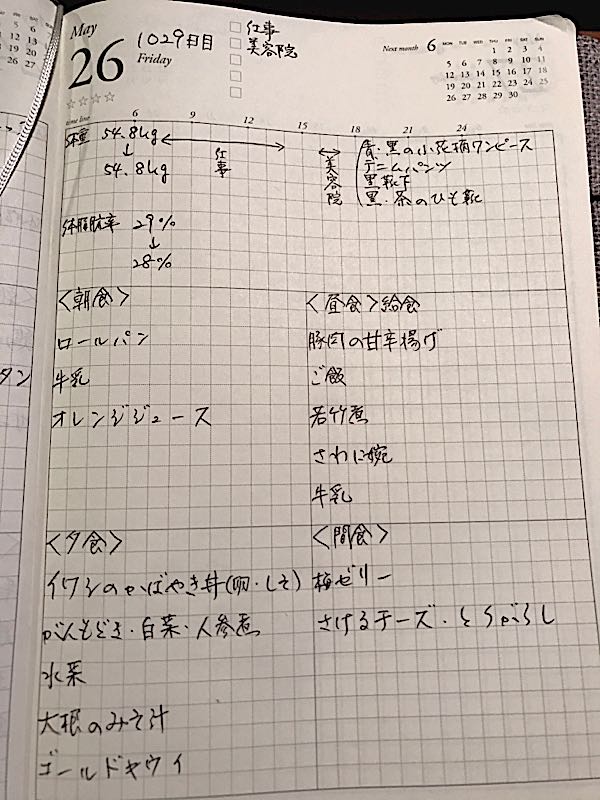 May
26
Friday
1029日目
仕事
美容院
Next month 6 MON TUE WED THU FRI SAT SUN
1 2 3 4
5 6 7 8 9 10 11
12 13 14 15 16 17 18
19 20 21 22 23 24 25
26 27 28 29 30
☆☆☆☆
time line 6 9 12 15 18 21 24
体重 54.8kg
↓
54.8kg
仕事
美容院
青・黒の小花柄ワンピース
デニムパンツ
黒靴下
黒・茶のひも靴
体脂肪率 29%
↓
28%
<朝食>
ロールパン
牛乳
オレンジジュース
<昼食>給食
豚肉の甘辛揚げ
ご飯
若竹煮
さわに椀
牛乳
<夕食>
イワシのかばやき丼(卵・しそ)
がんもどき・白菜・人参煮
水菜
大根のみそ汁
ゴールドキウイ
<間食>
梅ゼリー
さけるチーズ・とうがらし
タン